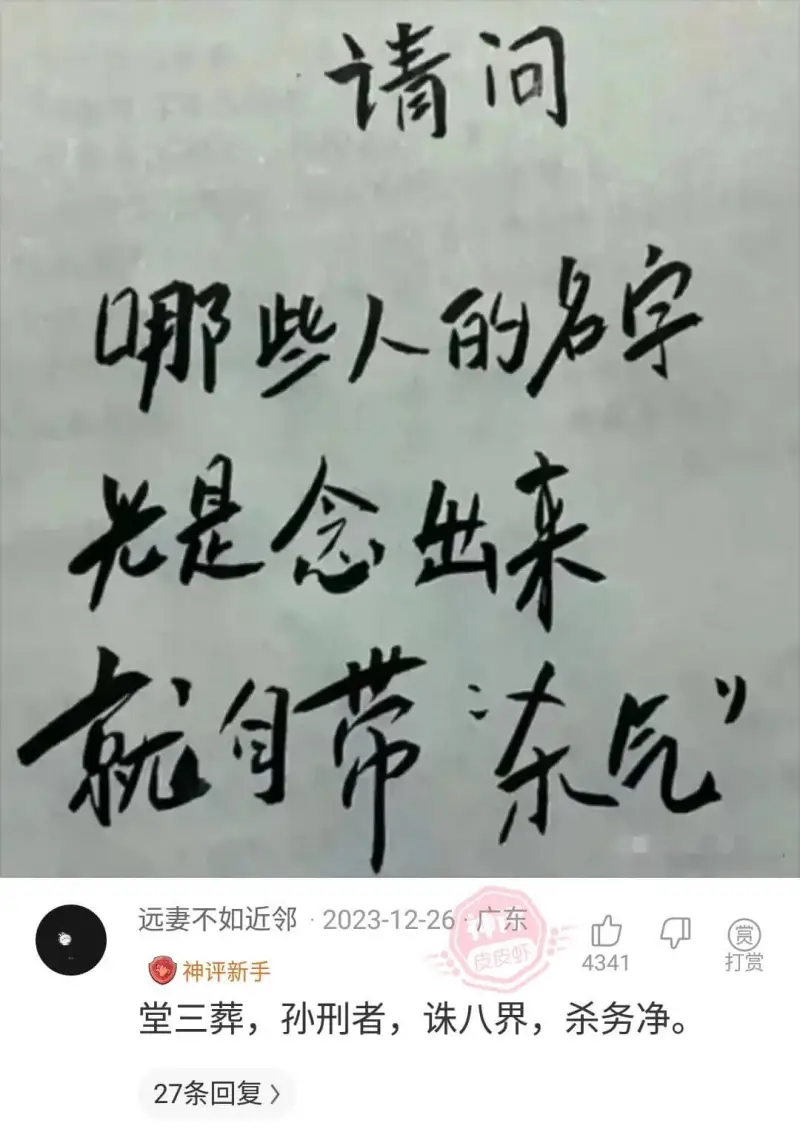 请问
哪些人的名字
光是念出来
就自带“杀气”
远妻不如近邻 · 2023-12-26 · 广东
神评
皮皮虾
4341
赏
打赏
神评新手
堂三葬，孙刑者，诛八界，杀务净。
27条回复 >